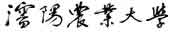 瀋陽農業大學